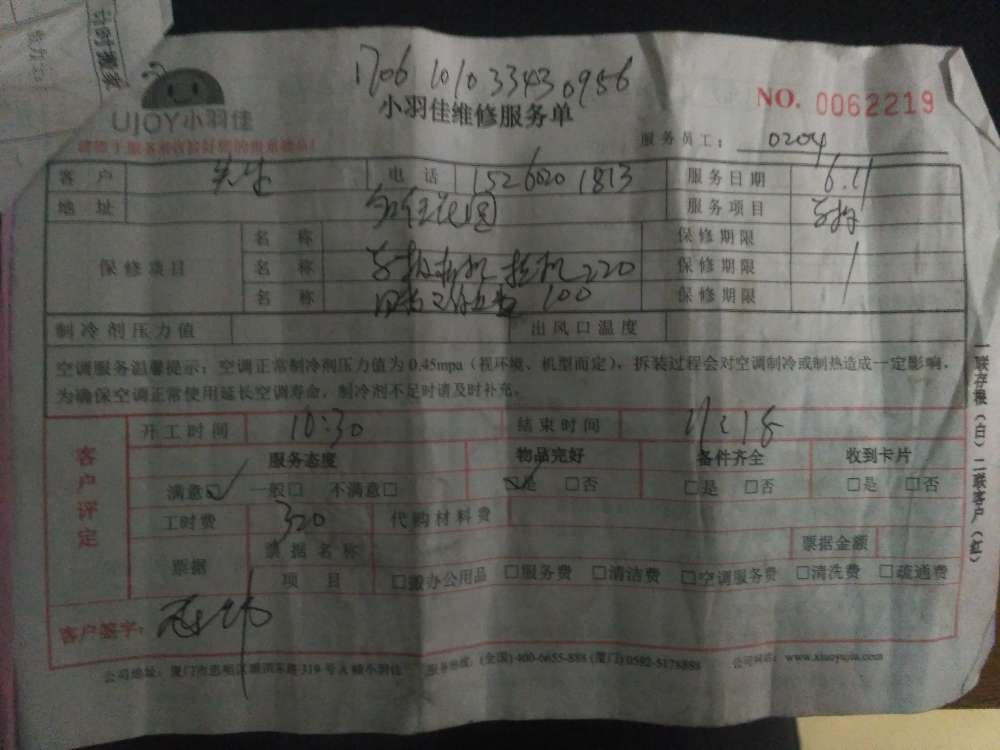 计时搬家
1706 1010 3343 0956
UJOY小羽佳
小羽佳维修服务单
NO. 0062219
服务员工: 0204
客户 先生 电话 152 6020 1813 服务日期 6.11
地址 服务项目
保修项目 名称 保修期限
名称 220 保修期限
名称 100 保修期限
制冷剂压力值 出风口温度
空调服务温馨提示:空调正常制冷剂压力值为0.45mpa(视环境、机型而定),拆装过程会对空调制冷或制热造成一定影响,
为确保空调正常使用延长空调寿命,制冷剂不足时请及时补充。
客户评定
开工时间 10:30 结束时间
服务态度 物品完好 备件齐全 收到卡片
满意☑ 一般□ 不满意□ ☑是 □否 □是 □否 □是 □否
工时费 320 代购材料费
票据 票据名称 票据金额
项目 □搬办公用品 □服务费 □清洁费 □空调服务费 □清洗费 □疏通费
客户签字:
公司地址:厦门市思明区 319号A幢小羽佳 服务热线:(全国)400-6655-888 (厦门)0592-5178888 公司网站: www.xiaoyujia.com
一联存根(白)二联客户(红)